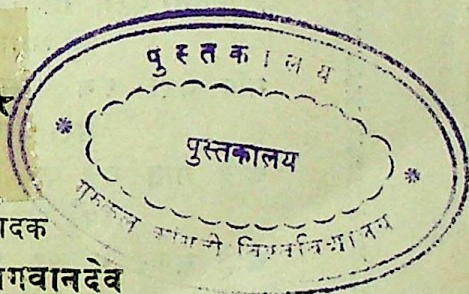 पुस्तकालय
पुस्तकालय
गुरुकुल कांगड़ी विश्वविद्यालय
ादक
गवानदेव